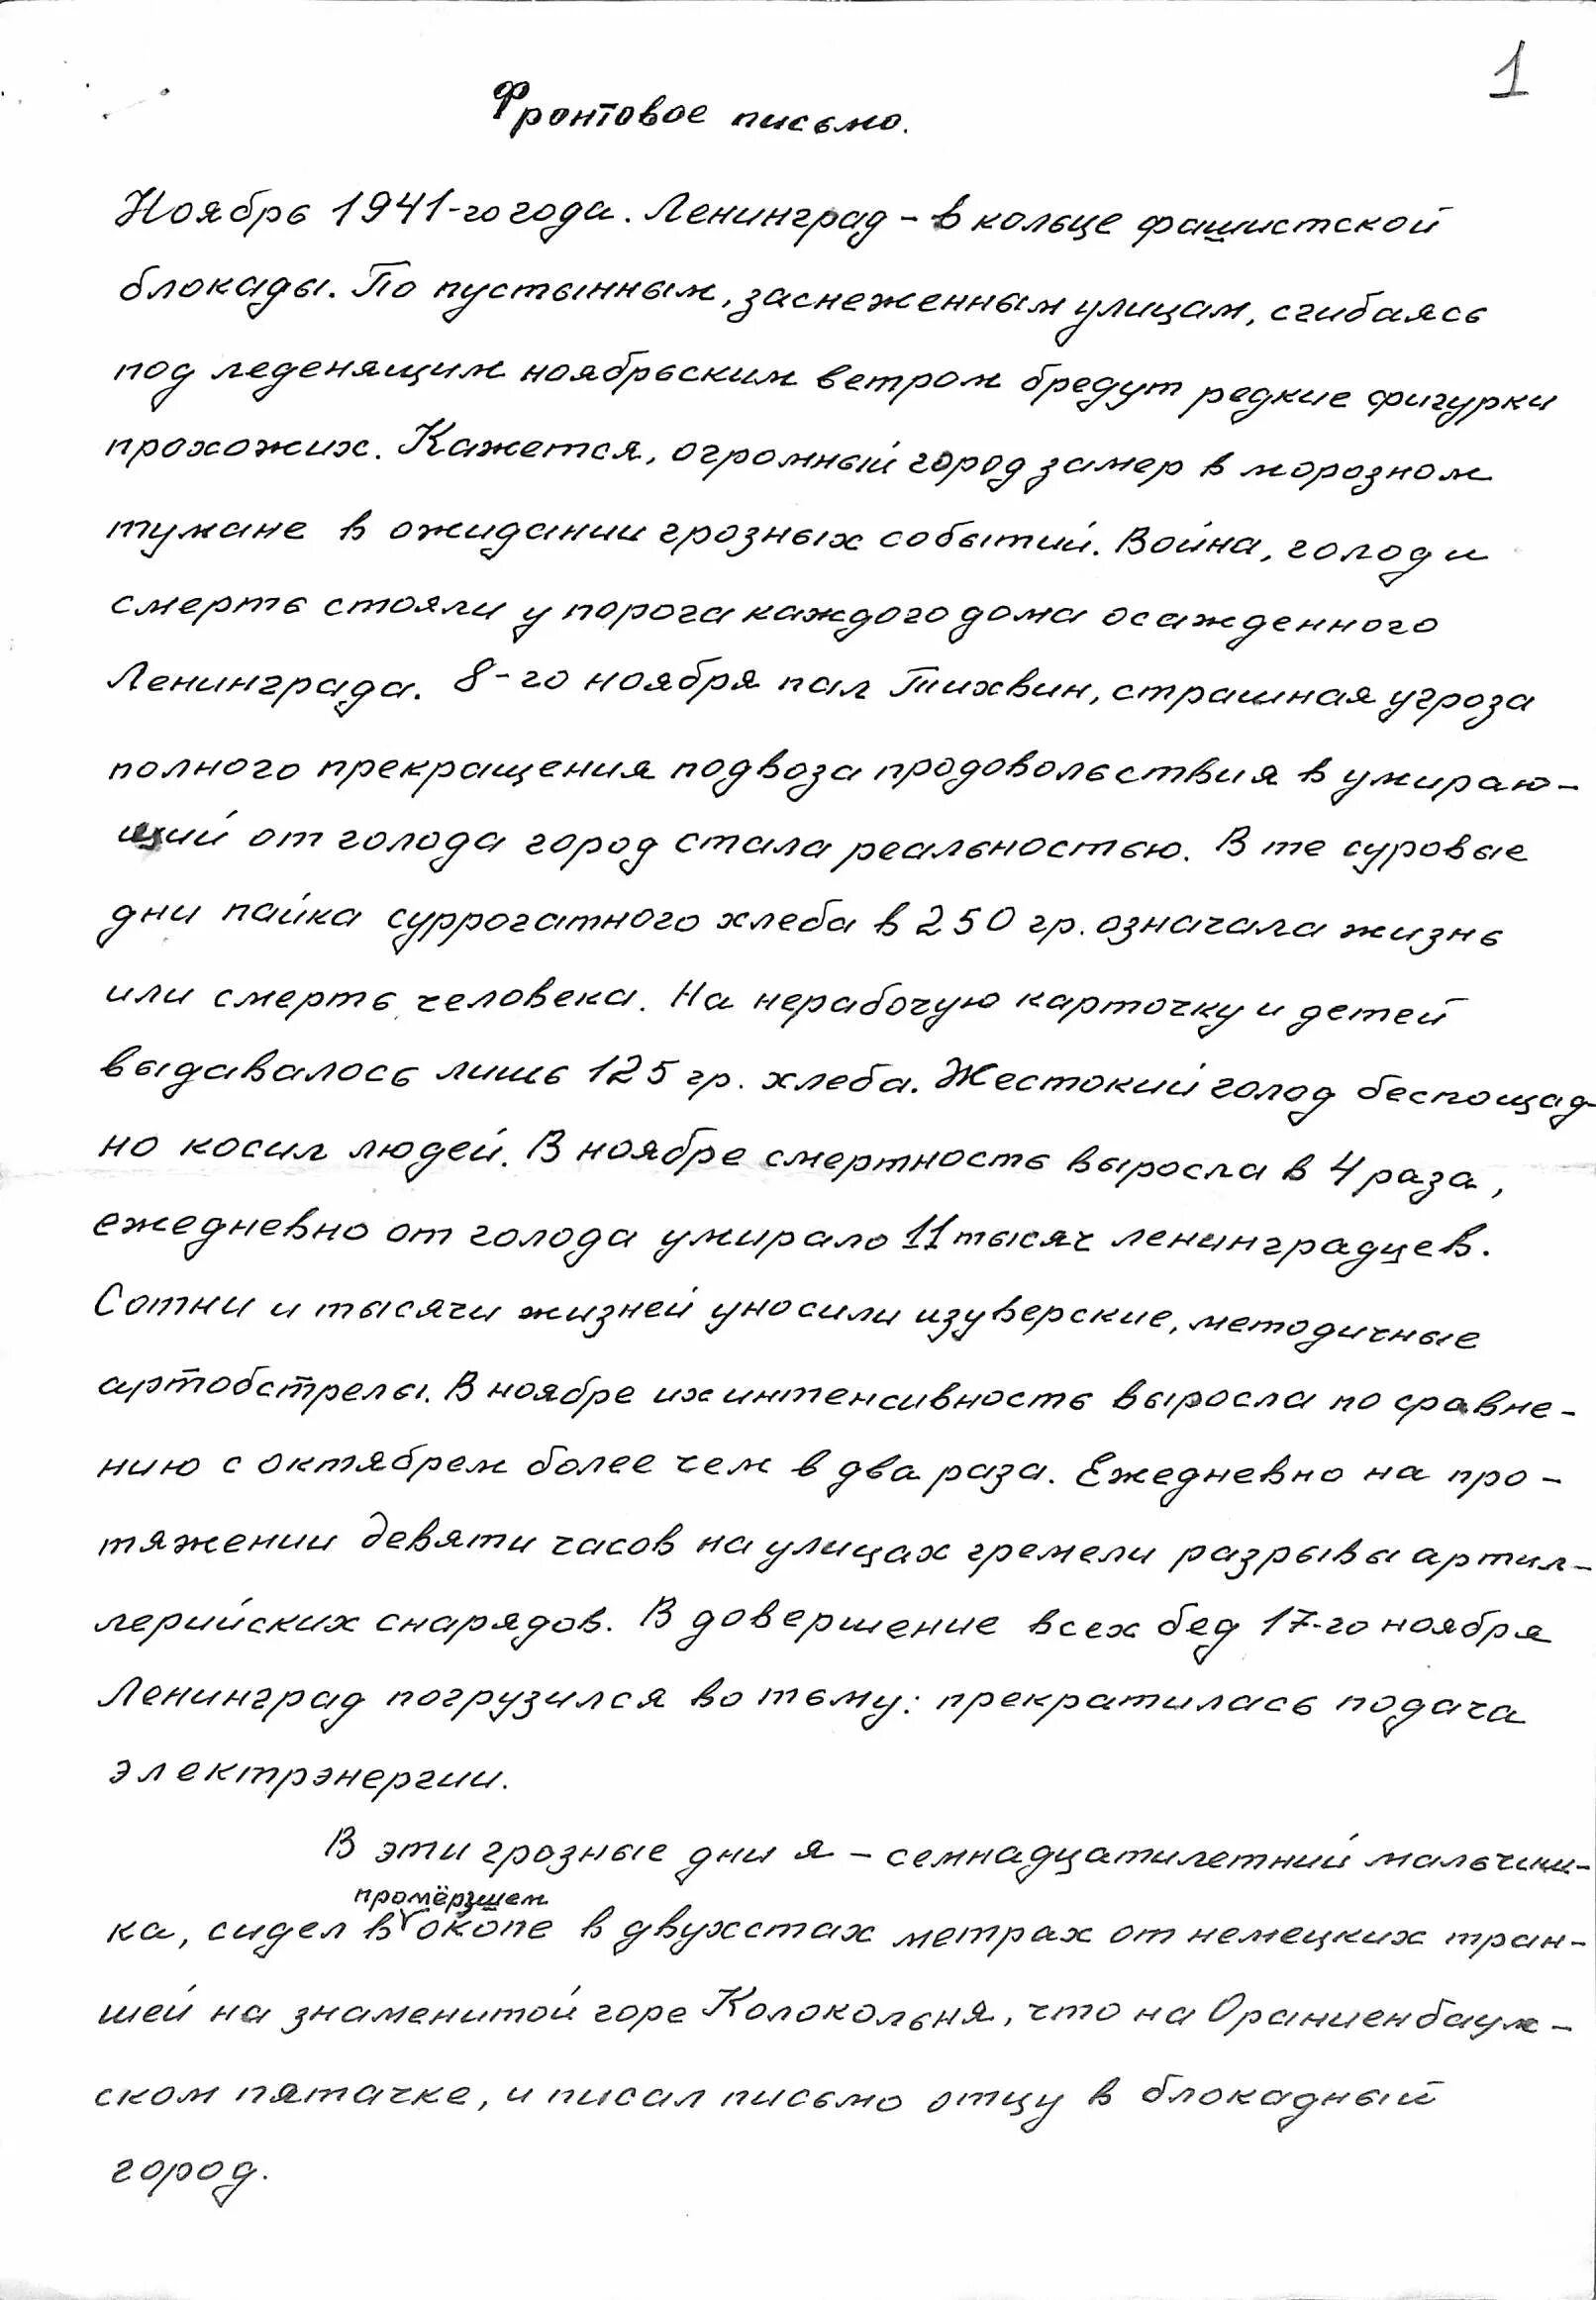 1
Фронтовое письмо.
Ноябрь 1941-го года. Ленинград – в кольце фашистской
блокады. По пустынным, заснеженным улицам, сгибаясь
под леденящим ноябрьским ветром бредут редкие фигурки
прохожих. Кажется, огромный город замер в морозном
тумане в ожидании грозных событий. Война, голод и
смерть стояли у порога каждого дома осажденного
Ленинграда. 8-го ноября пал Тихвин, страшная угроза
полного прекращения подвоза продовольствия в умираю-
щий от голода город стала реальностью. В те суровые
дни пайка суррогатного хлеба в 250 гр. означала жизнь
или смерть человека. На нерабочую карточку и детей
выдавалось лишь 125 гр. хлеба. Жестокий голод беспощад-
но косил людей. В ноябре смертность выросла в 4 раза,
ежедневно от голода умирало 11 тысяч ленинградцев.
Сотни и тысячи жизней уносили изуверские, методичные
артобстрелы. В ноябре их интенсивность выросла по сравне-
нию с октябрем более чем в два раза. Ежедневно на про-
тяжении девяти часов на улицах гремели разрывы артил-
лерийских снарядов. В довершение всех бед 17-го ноября
Ленинград погрузился во тьму: прекратилась подача
электрэнергии.
В эти грозные дни я – семнадцатилетний мальчиш-
промёрзшем
ка, сидел в окопе в двухстах метрах от немецких тран-
шей на знаменитой горе Колокольня, что на Ораниенбаум-
ском пятачке, и писал письмо отцу в блокадный
город.